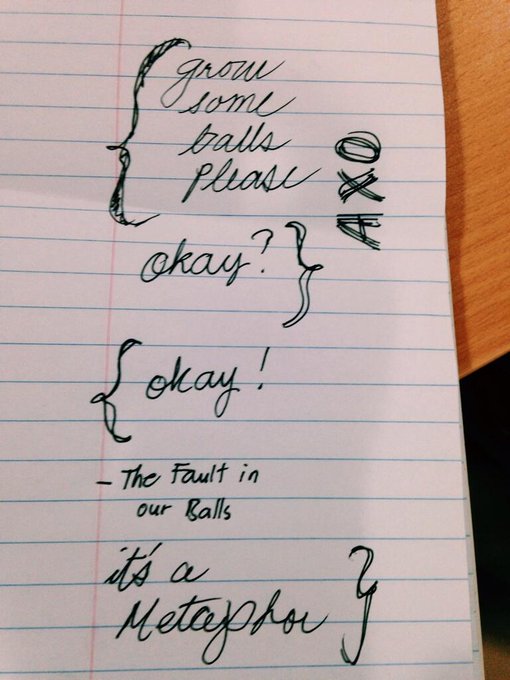 grow
some
balls
please
AXO
okay?
okay!
- The Fault in
our Balls
it's a
Metaphor